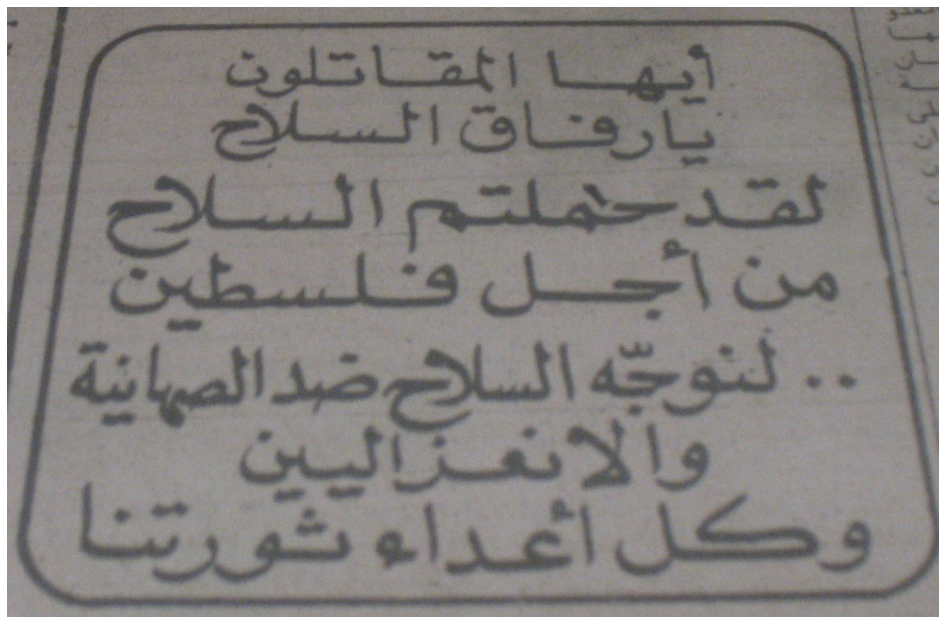 أيها المقاتلون
يا رفاق السلاح
لقد حملتم السلاح
من أجل فلسطين
.. لنوجّه السلاح ضد الصهاينة
والانعزاليين
وكل أعداء ثورتنا